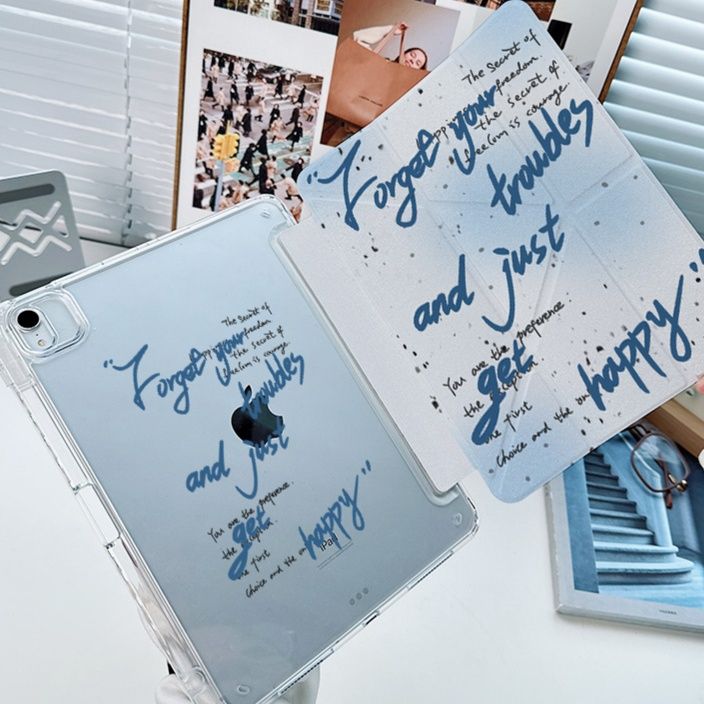 The Secret of
freedom
"Forget your
the secret of
freedom is courage
troubles
and just
You are the preference.
get
the exception
happy"
first
choice and the
iPad
The Secret of
freedom.
"Forget your
the secret of
freedom is courage
troubles
and just
You are the preference.
get
the exception
happy"
first
choice and the